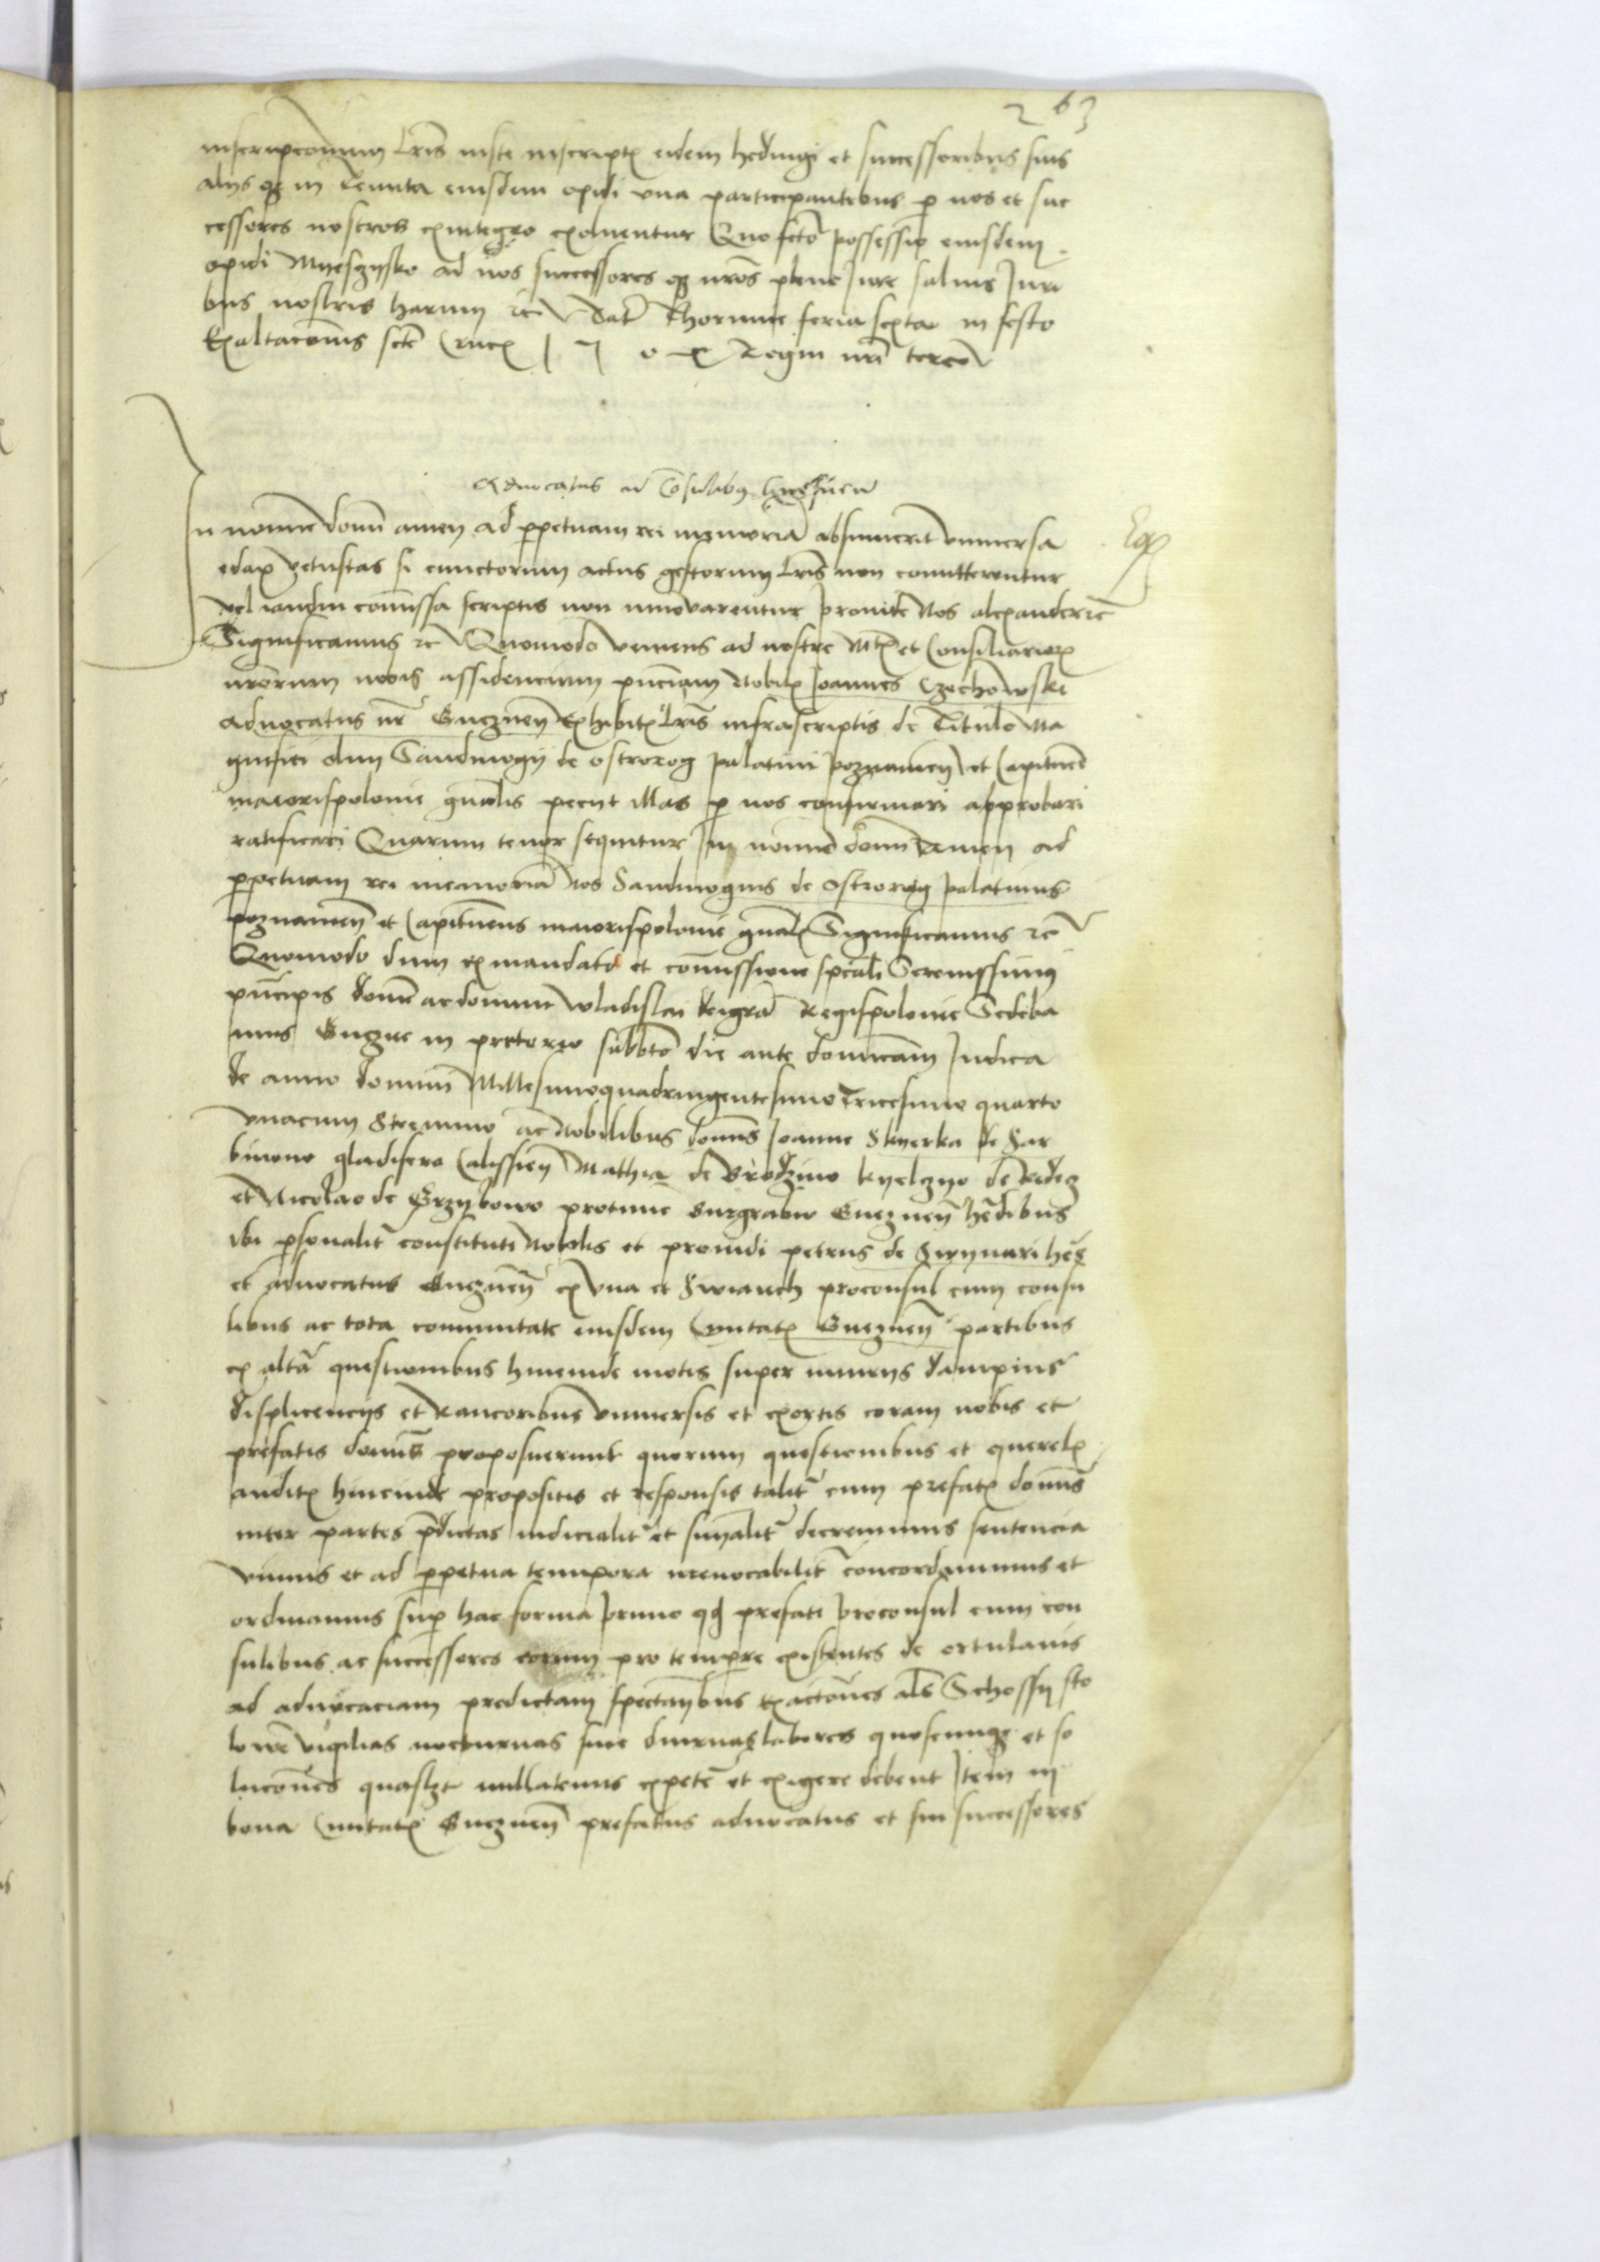 263
inscripcionum lris iuste inscriptis eidem hedingi et successoribus suis
alijs q3 in tenuta eiusdem opidi vna participantibus p nos et suc
cessores nostros exintegro exoluentur Quo fcto possessio eiusdem
opidi Myeszysko ad nos successores q3 nros pleno Jure saluis Juri
bus nostris harum rc Dat Thorunie feria sexta in festo
Exaltacionis scte Crucis Regni nri tercio
Advocatus cu Consulibus Gneznen
In nomine domi amen ad ppetuam rei memoria absumerit vniuersa
edax vetustas si cunctorum actus gestorum lris non comitterentur
vel iamdiu comissa scriptis non innovarentur Proinde Nos alexander rc
Significamus rc Quomodo veniens ad nostre Mtis et Consiliarior
nrorum nobis assidencium pnciam Nobilis Joannes Czechowski
aduocatus nr Gneznen Exhibitis lris infrascriptis de Titulo Ma
gnifici olim Sandiuogij de ostrorog palatini poznanien et Capitnei
maiorispolonie gnalis peciit illas p nos confirmari approbari
ratificari Quarum tenor sequitur In nomine domi Amen ad
ppetuam rei memoria Nos Sandiuogius de ostrorog palatinus
poznanien et Capitneus maiorispolonie gnalis Significamus rc
Quomodo dum ex mandato et comissione speciali Serenissimi
principis domi ac domini wladislai dei gra Regispolonie Sedeba
mus Gnezne in pretorio sabbto die ante dominicam Judica
de anno domini Millesimoquadringentesimo Tricesimo quarto
vnacum Strennuo ac Nobilibus domis Joanne Skuerka de Sar
binowo gladifero Calissien Mathia de Brodzino kyelczyo de Redcz
et Nicolao de Grzybowo protunc Burgrabio Gneznen hedibus
ibi psonalit constituti Nobilis et prouidi petrus de Swynari hes
et aduocatus Gneznen ex vna et Swianch proconsul cum consu
libus ac tota comunitate eiusdem Ciuitatis Gneznen partibus
ex alta questionibus hincinde motis super iniurijs dampnis
displicencijs et Rancoribus vniuersis et exortis coram nobis et
prefatis domis proposuerunt quorum questionibus et querelis
auditis hincinde propositis et responsis talit cum prefatis domis
inter partes pdictas iudicialit et finalit decreuimus sentencia
vimus et ad ppetua tempora irreuocabilit concordauimus et
ordinamus sup hac forma Primo qd prefati proconsul cum con
sulibus ac successores eorum pro tempore existentes de ortulanis
ad aduocaciam predictam spectantibus Exactones als Schossy sto
lowe vigilias nocturnas siue diurnas labores quoscunq3 et so
lucones quasl3t nullatenus expete et exigere debent Item in
bona Ciuitatis Gneznen prefatus aduocatus et sui successores